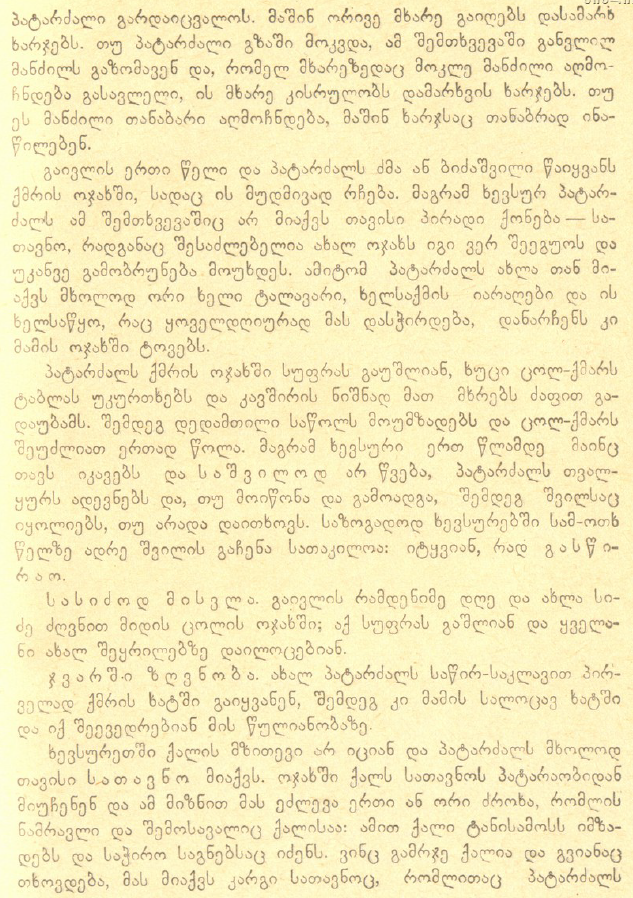 პატარძალი გარდაიცვალოს. მაშინ ორივე მხარე გაიღებს დასამარხ
ხარჯებს. თუ პატარძალი გზაში მოკვდა, ამ შემთხვევაში განვლილ
მანძილს გაზომავენ და, რომელ მხარეზედაც მოკლე მანძილი აღმო-
ჩნდება გასავლელი, ის მხარე კისრულობს დამარხვის ხარჯებს. თუ
ეს მანძილი თანაბარი აღმოჩნდება, მაშინ ხარჯსაც თანაბრად ინა-
წილებენ.
გაივლის ერთი წელი და პატარძალს ძმა ან ბიძაშვილი წაიყვანს
ქმრის ოჯახში, სადაც ის მუდმივად რჩება. მაგრამ ხევსურ პატარ-
ძალს ამ შემთხვევაშიც არ მიაქვს თავისი პირადი ქონება — სა-
თავნო, რადგანაც შესაძლებელია ახალ ოჯახს იგი ვერ შეეგუოს და
უკანვე გამობრუნება მოუხდეს. ამიტომ პატარძალს ახლა თან მი-
აქვს მხოლოდ ორი ხელი ტალავარი, ხელსაქმის იარაღები და ის
ხელსაწყო, რაც ყოველდღიურად მას დასჭირდება, დანარჩენს კი
მამის ოჯახში ტოვებს.
პატარძალს ქმრის ოჯახში სუფრას გაუშლიან, ხუცი ცოლ-ქმარს
ტაბლას უკურთხებს და კავშირის ნიშნად მათ მხრებს ძაფით გა-
დაუბამს. შემდეგ დედამთილი საწოლს მოუმზადებს და ცოლ-ქმარს
შეუძლიათ ერთად წოლა. მაგრამ ხევსური ერთ წლამდე მაინც
თავს იკავებს და საშვილოდ არ წვება, პატარძალს თვალ-
ყურს ადევნებს და, თუ მოიწონა და გამოადგა, შემდეგ შვილსაც
იყოლიებს, თუ არადა დაითხოვს. საზოგადოდ ხევსურებში სამ-ოთხ
წელზე ადრე შვილის გაჩენა სათაკილოა: იტყვიან, რად გასწი-
რაო.
სასიძოდ მისვლა. გაივლის რამდენიმე დღე და ახლა სი-
ძე ძღვნით მიდის ცოლის ოჯახში; აქ სუფრას გაშლიან და ყველა-
ნი ახალ შეყრილებზე დაილოცებიან.
ჯვარში ზღვნობა. ახალ პატარძალს საწირ-საკლავით პირ-
ველად ქმრის ხატში გაიყვანენ, შემდეგ კი მამის სალოცავ ხატში
და იქ შეევედრებიან მის წულიანობაზე.
ხევსურეთში ქალის მზითევი არ იციან და პატარძალს მხოლოდ
თავისი სათავნო მიაქვს. ოჯახში ქალს სათავნოს პატარაობიდან
მიუჩენენ და ამ მიზნით მას ეძლევა ერთი ან ორი ძროხა, რომლის
ნამრავლი და შემოსავალიც ქალისაა: ამით ქალი ტანისამოსს იმზა-
დებს და საჭირო საგნებსაც იძენს. ვინც გამრჯე ქალია და გვიანაც
თხოვდება, მას მიაქვს კარგი სათავნოც, რომლითაც პატარძალს